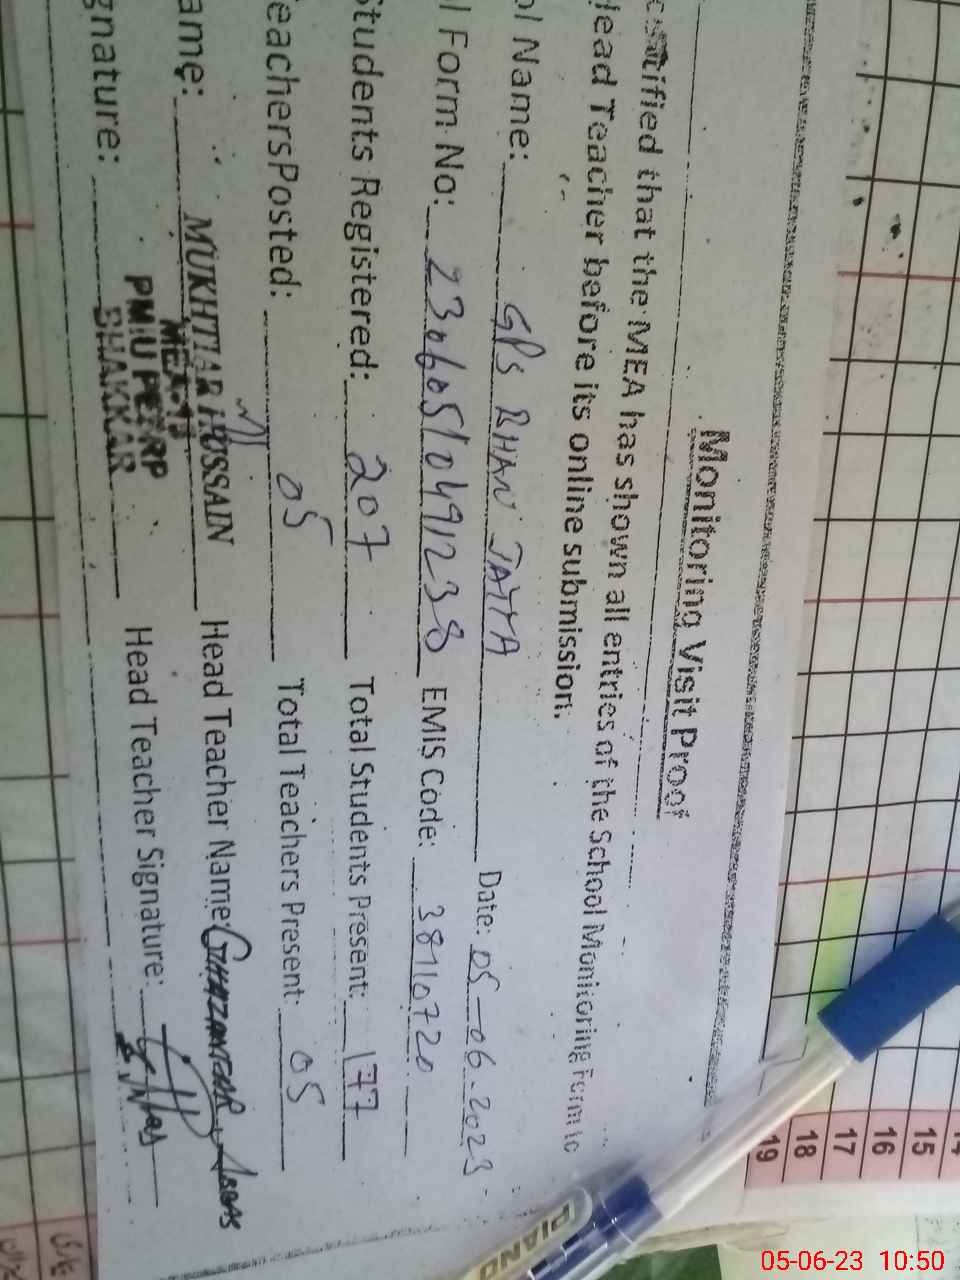 Monitoring Visit Proof
tified that the MEA has shown all entries of the School Monitoring Form to
Head Teacher before its online submission.
ol Name: GPS BHAN JATTA Date: 05-06-2023
l Form No: 23060510491238 EMIS Code: 38110720
Students Registered: 207 Total Students Present: 177
Teachers Posted: 05 Total Teachers Present: 05
ame: MUKHTIAR HUSSAIN Head Teacher Name: Ghazanfar Abbas
MEA-
PMIU PESRP
BHAKKAR
gnature: Head Teacher Signature:
PIANO
15
16
17
18
19
05-06-23 10:50